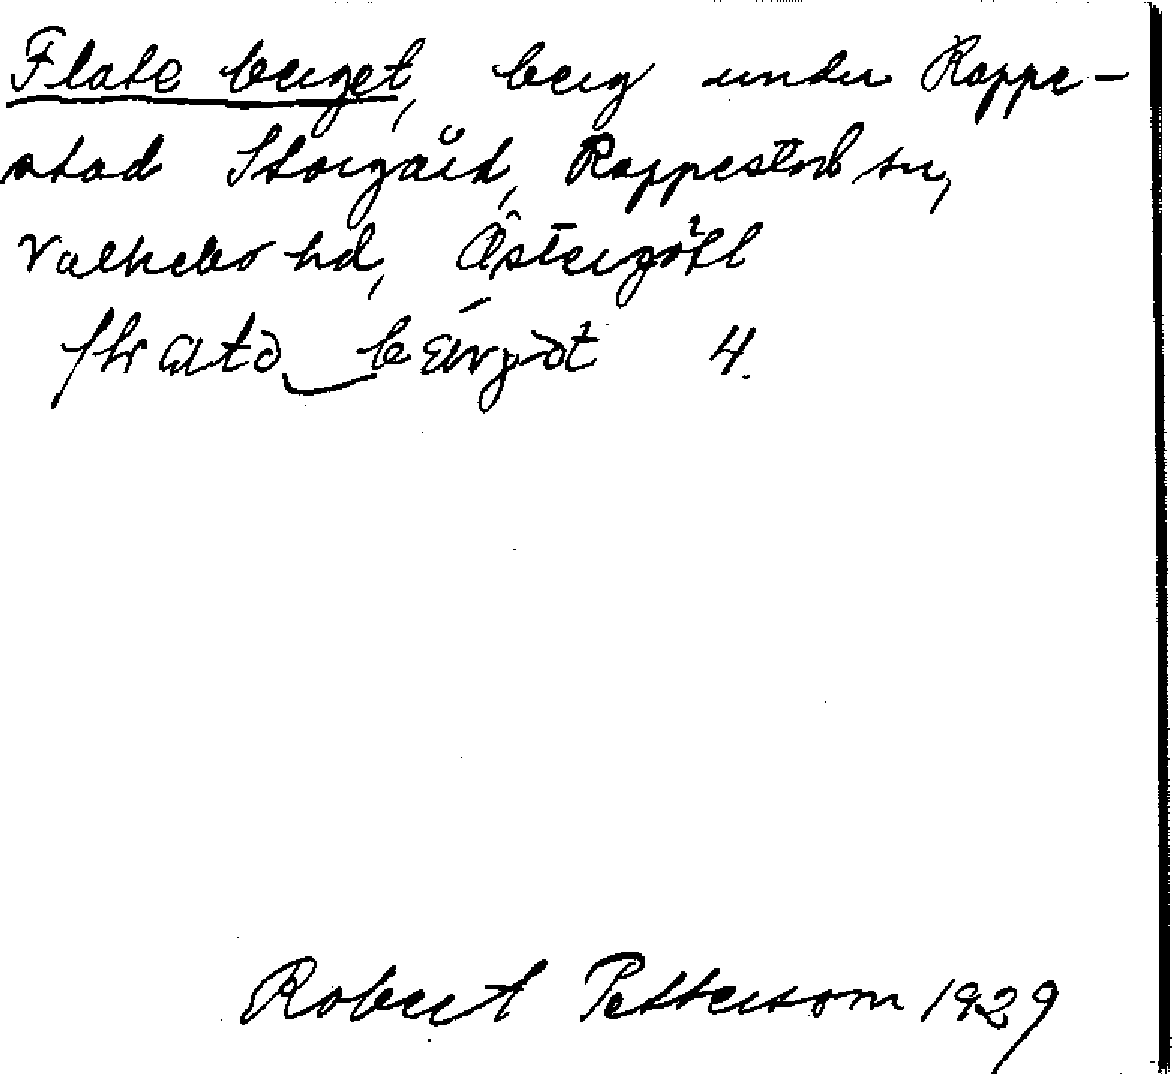 Flate berget, berg under Rappe-
stad Storgård, Rappestad sn,
Valkebo hd, Östergötl
4.
Robert Pettersson 1929